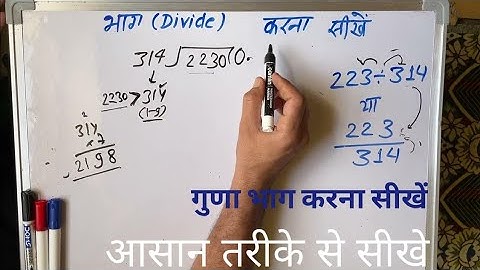 भाग (Divide) करना सीखें
314√2230(0.
2230>314
(1-9)
2
314
×7
2198
223÷314
या
223
314
गुणा भाग करना सीखें
आसान तरीके से सीखे